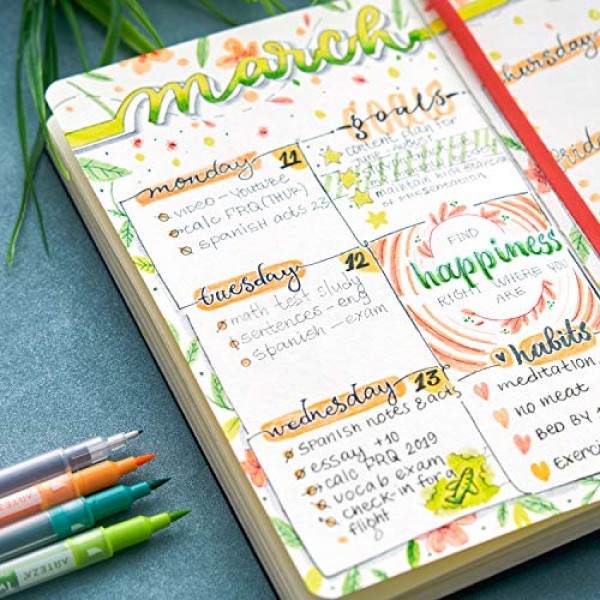 march
goals
content plan for
maintain high
of presentation
monday 11
video - youtube
calc FRQ (THUR)
spanish acts 23
tuesday 12
math test study
sentences - eng
spanish - exam
wednesday 13
spanish notes & acts
essay +10
calc FRQ 2019
vocab exam
check-in for a
flight
FIND
happiness
RIGHT WHERE YOU
ARE
habits
meditation
no meat
BED BY
Exerci
Thursday
ARTEZA
ARTEZA